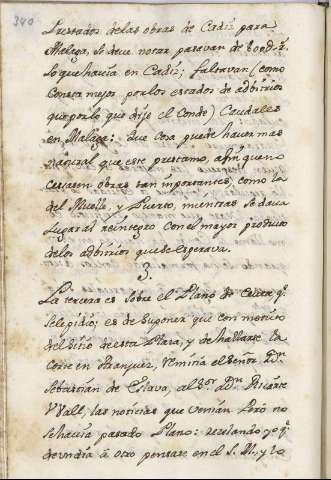 340
Prestados de las obras de Cadiz para
Malaga, se deve notar pasavan de
lo que havia en Cadiz; faltavan (como
Consta mejor por los estados de adbitrios
que por lo que dijo el Conde) Caudales
en Malaga: Que Cosa puede haver mas
natural que este prestamo, afin que no
Cesasen obras tan importantes como la
del Muelle, y Puerto, mientras se dava
lugar al reintegro con el mayor producto
de los adbitrios que se esperava.
3.
La tercera es sobre el Plano de Ceuta q.e
se le pidio; es de suponer que con motivo
del sitio de esta Plaza, y de hallarse la
Corte en Aranjuez, remitia el Señor D.n
Sebastian de Eslava, al S.or D.n Ricardo
Vvall, las noticias que venian. Pero no
se havia pasado Plano: recelando yo q.e
devndia á otro pensase en el S. M. y lo